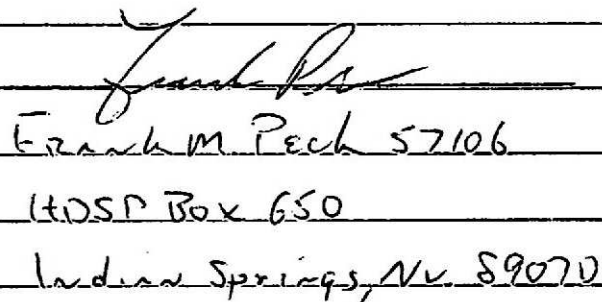 Frank P
Frank M Peck 57106
HDSP Box 650
Indian Springs, Nv. 89070